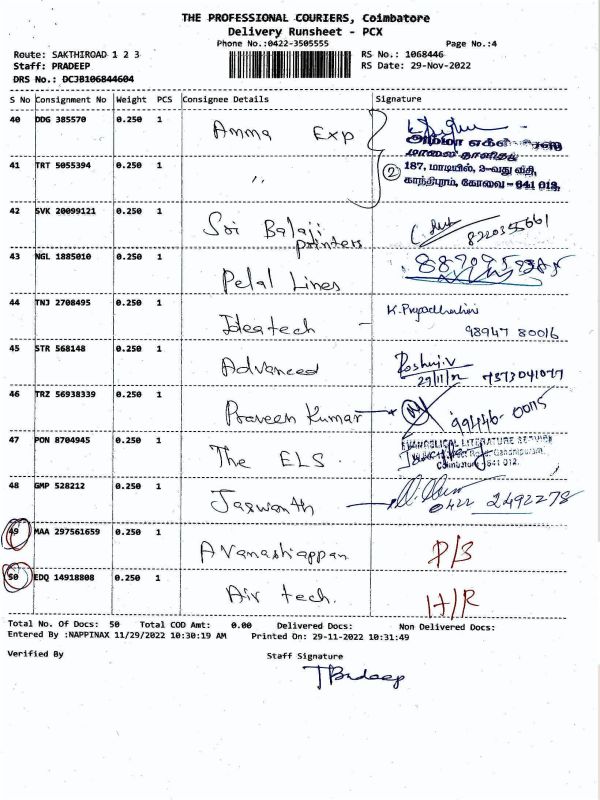 THE PROFESSIONAL COURIERS, Coimbatore
Delivery Runsheet - PCX
Phone No.:0422-3505555 Page No.:4
Route: SAKTHIROAD 1 2 3 RS No.: 1068446
Staff: PRADEEP RS Date: 29-Nov-2022
DRS No.: DCJB106844604
S No Consignment No Weight PCS Consignee Details Signature
40 DDG 385570 0.250 1 Amma Exp
அம்மா
மாலை நாளிதழ்
41 TRT 5055394 0.250 1 〃 2 187, மாடியில், 2-வது வீதி,
காந்திபுரம், கோவை - 641 012.
42 SVK 20099121 0.250 1 Sri Balaji printers
43 NGL 1885010 0.250 1 Petal Lines
44 TNJ 2708495 0.250 1 Ideatech - 98947 80016
45 STR 568148 0.250 1 Advanced Roshni.V
29/11/22 7373041077
46 TRZ 56938339 0.250 1 Praveen Kumar 99446-00115
47 PON 8704945 0.250 1 The ELS. EVANGELICAL LITERATURE SERVICE
Gandhipuram,
Coimbatore 641 012.
48 GMP 528212 0.250 1 Jaswanth 0422 2492278
49 MAA 297561659 0.250 1 Avanashiappan P/S
50 EDQ 14918808 0.250 1 Air tech. H/R
Total No. Of Docs: 50 Total COD Amt: 0.00 Delivered Docs: Non Delivered Docs:
Entered By :NAPPINAX 11/29/2022 10:30:19 AM Printed On: 29-11-2022 10:31:49
Verified By Staff Signature
T Pradeep